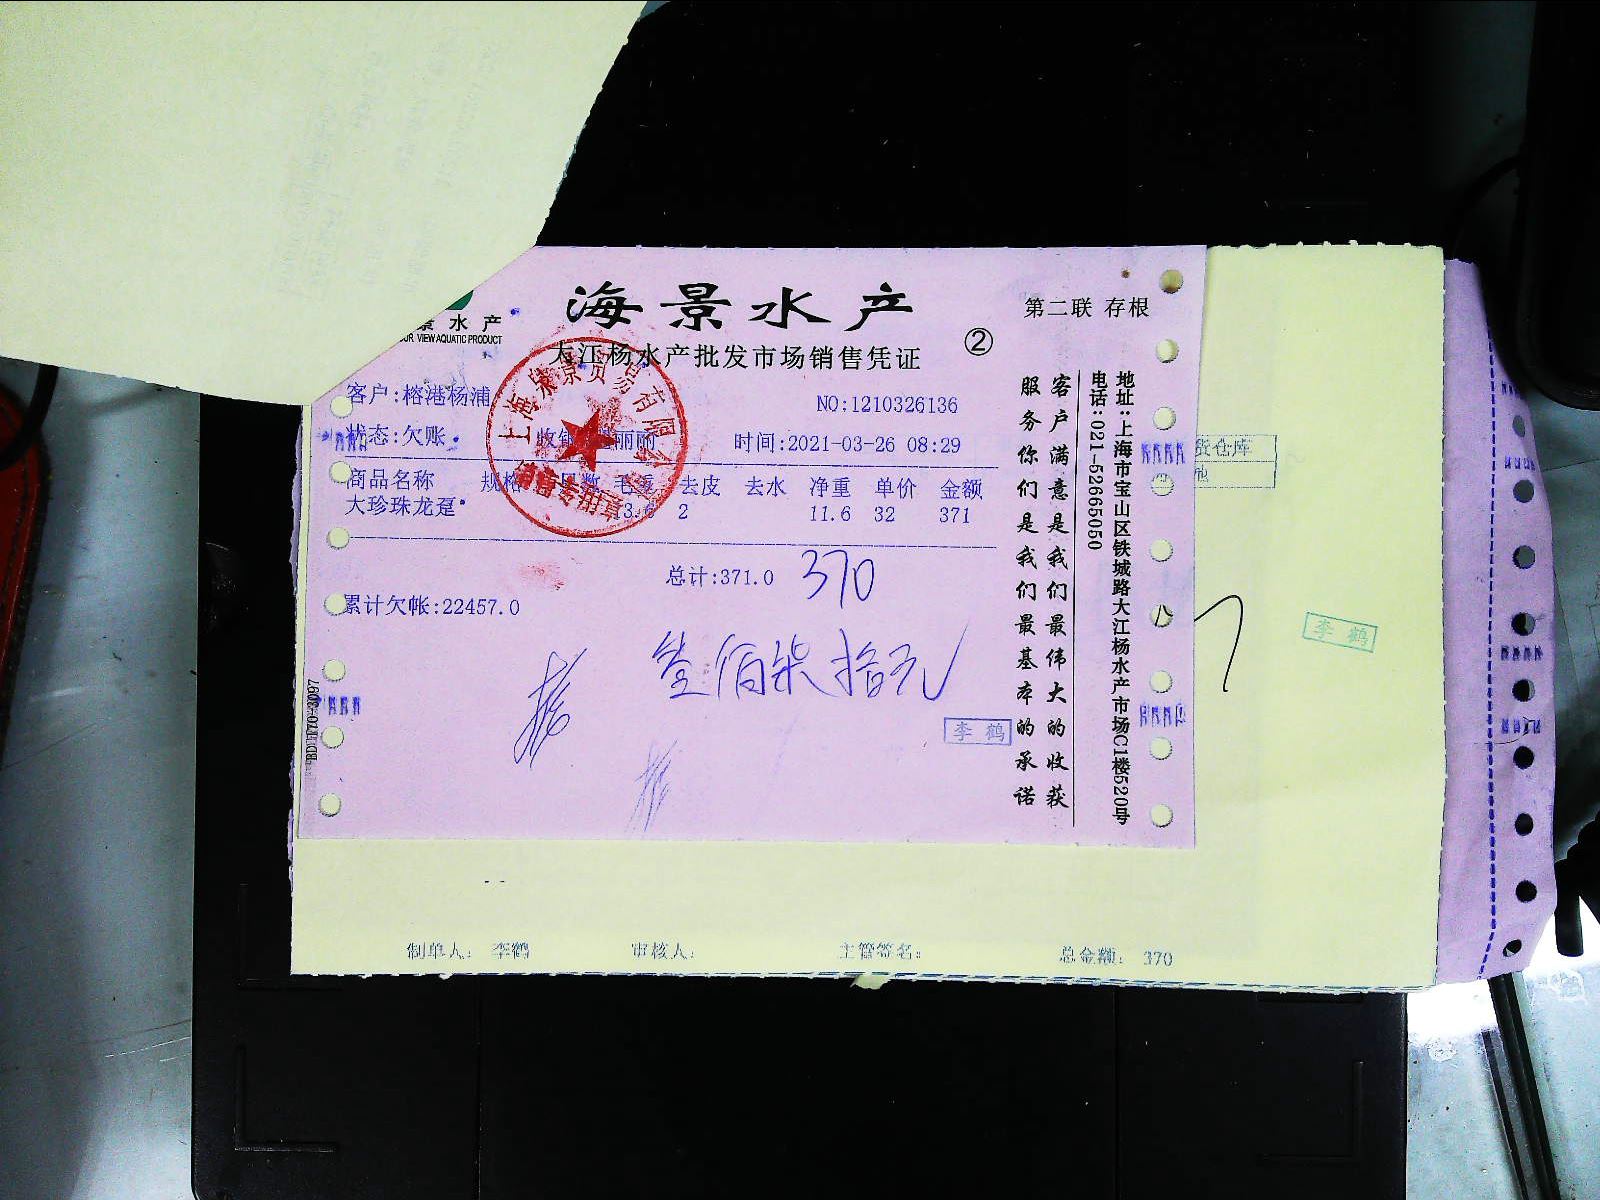 海景水产
第二联 存根
景 水 产
OUR VIEW AQUATIC PRODUCT
大江杨水产批发市场销售凭证
②
客户:榕港杨浦
NO:1210326136
状态:欠账
丽丽
时间:2021-03-26 08:29
商品名称 规格 毛重 去皮 去水 净重 单价 金额
大珍珠龙趸 13.6 2 11.6 32 371
总计:371.0 370
累计欠帐:22457.0
佰柒拾元
李鹤
客户满意是我们最伟大的收获
服务你们是我们最基本的承诺
地址:上海市宝山区铁城路大江杨水产市场C1楼520号
电话:021-52665050
货仓库
李鹤
制单人: 李鹤 审核人: 主管签名: 总金额: 370